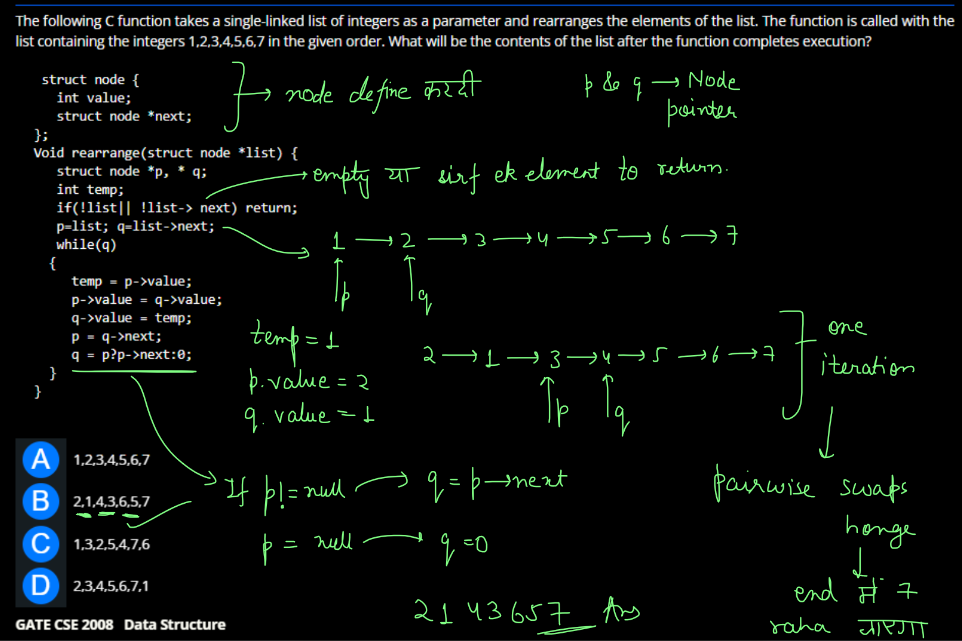 The following C function takes a single-linked list of integers as a parameter and rearranges the elements of the list. The function is called with the
list containing the integers 1,2,3,4,5,6,7 in the given order. What will be the contents of the list after the function completes execution?
struct node {
int value;
struct node *next;
};
node define करदी
p & q → Node
pointer
Void rearrange(struct node *list) {
struct node *p, * q;
int temp;
if(!list|| !list-> next) return;
p=list; q=list->next;
while(q)
{
temp = p->value;
p->value = q->value;
q->value = temp;
p = q->next;
q = p?p->next:0;
}
}
empty या sirf ek element to return.
1 → 2 → 3 → 4 → 5 → 6 → 7
p q
temp = 1
p.value = 2
q.value = 1
2 → 1 → 3 → 4 → 5 → 6 → 7
p q
one
iteration
A 1,2,3,4,5,6,7
B 2,1,4,3,6,5,7
C 1,3,2,5,4,7,6
D 2,3,4,5,6,7,1
If p!=null → q = p→next
p = null → q =0
pairwise swaps
honge
end में 7
raha जाएगा
2 1 4 3 6 5 7 Ans
GATE CSE 2008 Data Structure